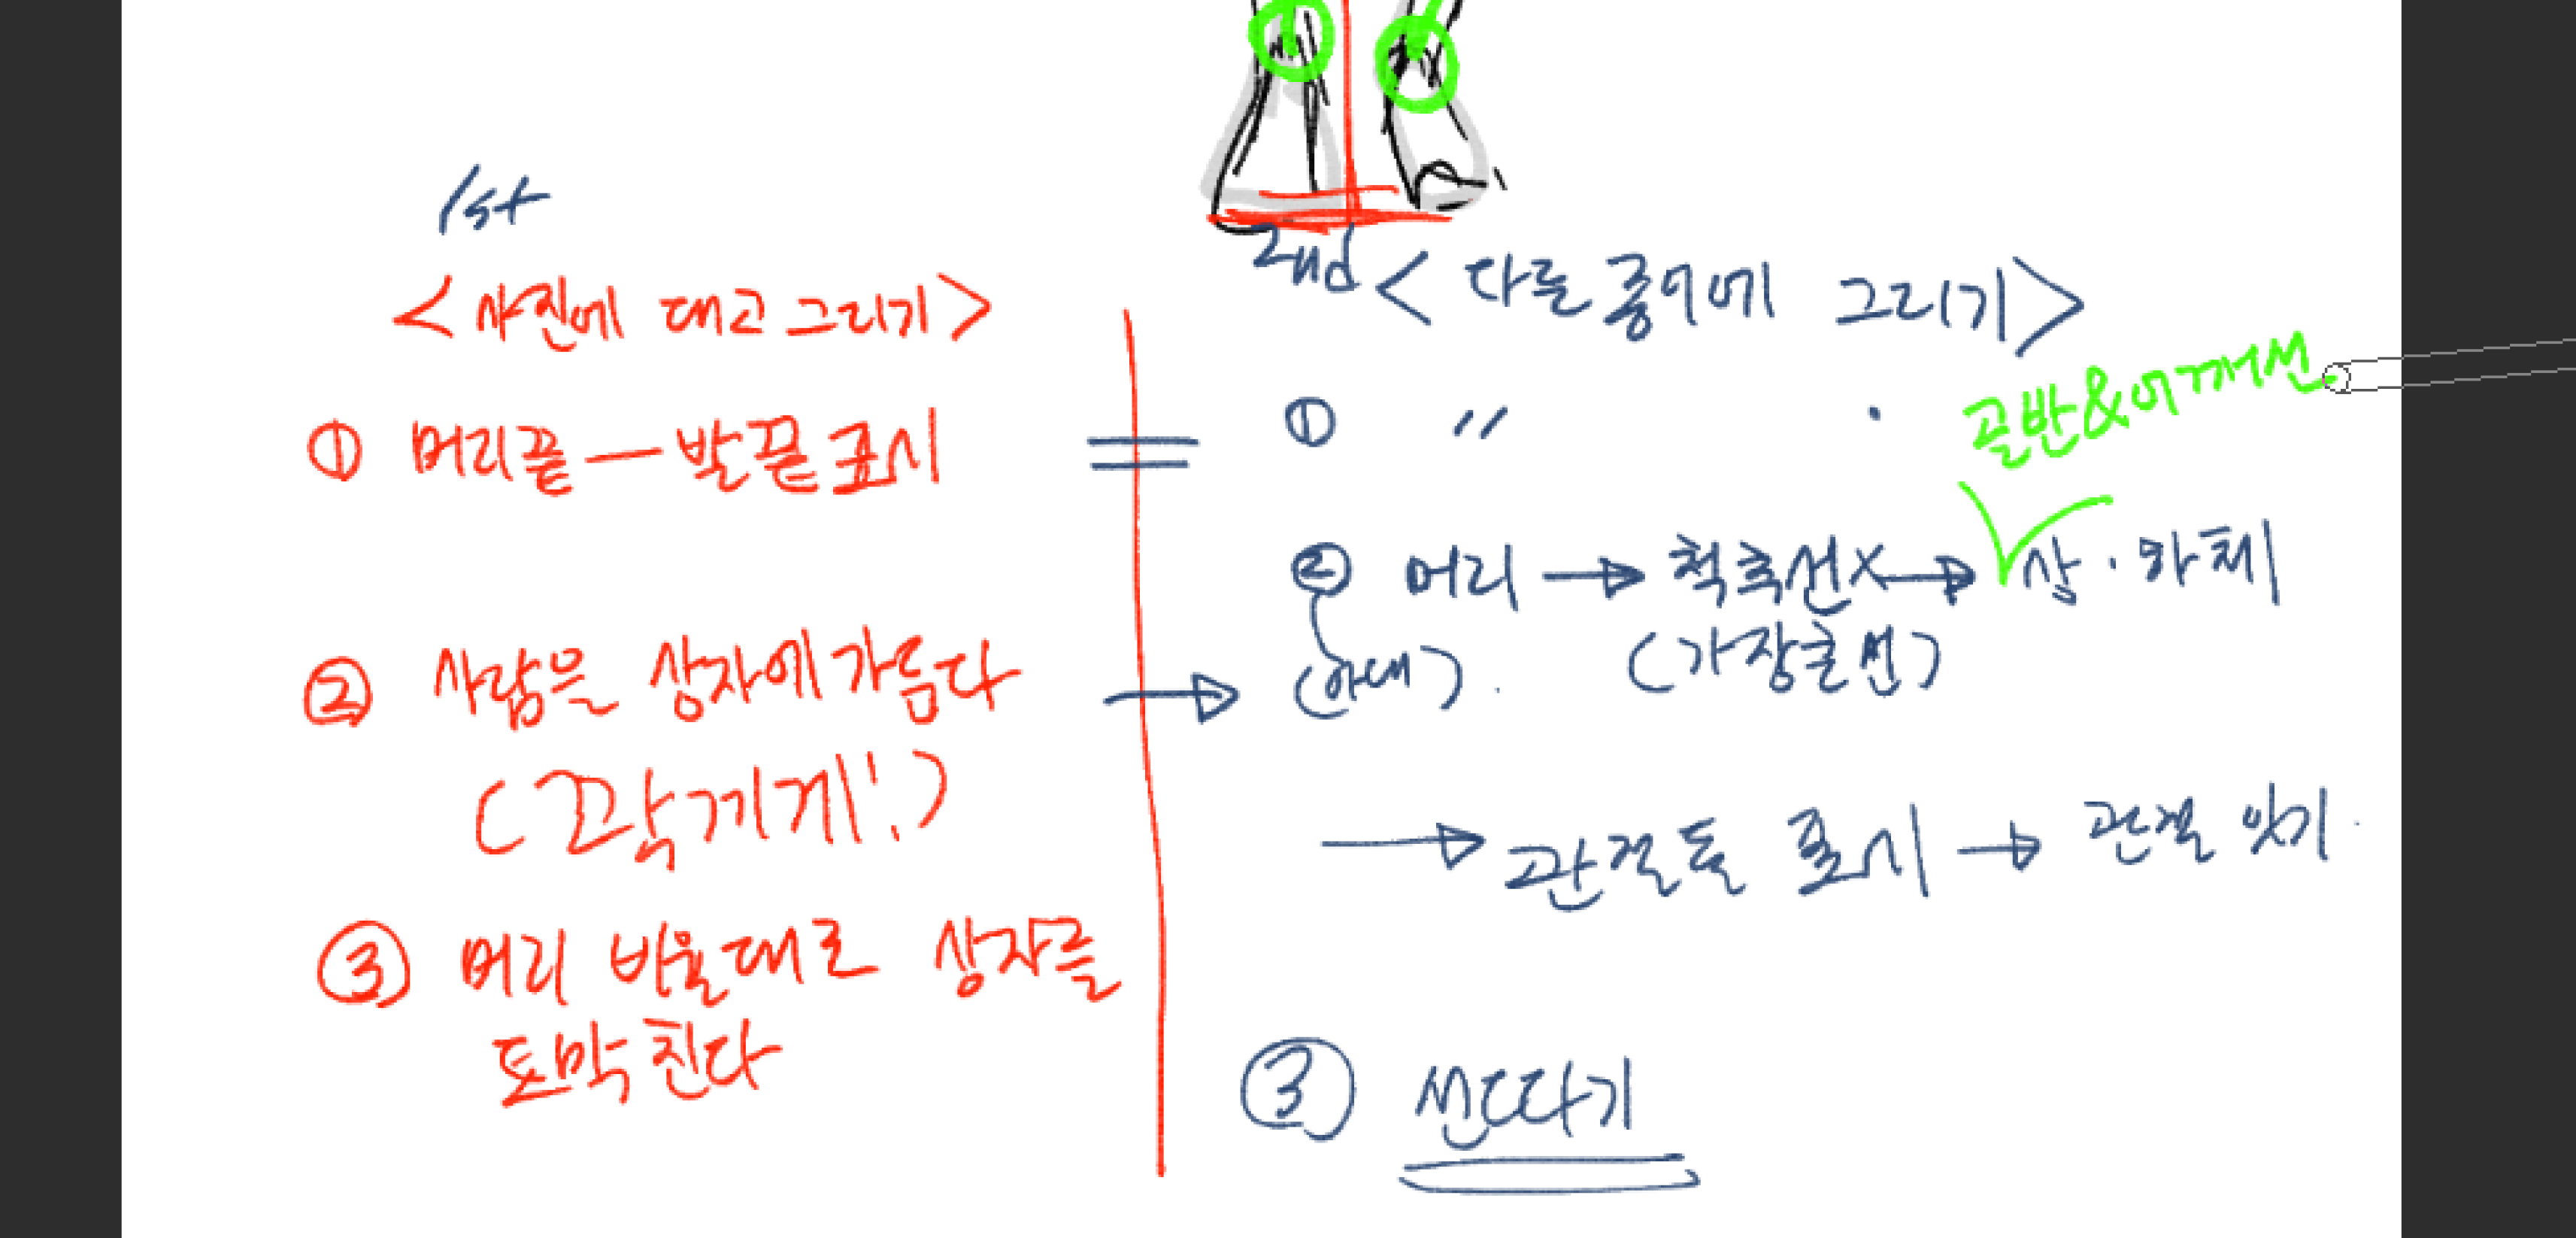 1st
<사진에 대고 그리기>
① 머리끝 — 발끝 표시
② 사람을 상자에 가둔다
(꽉끼게!)
③ 머리 비율대로 상자를
토막 친다
2nd <다른 종이에 그리기>
① 〃
골반&어깨선
② 머리 → 척추선 → 상·하체
(뼈대). (가장큰선)
→ 관절들 표시 → 관절 잇기.
③ 선따기